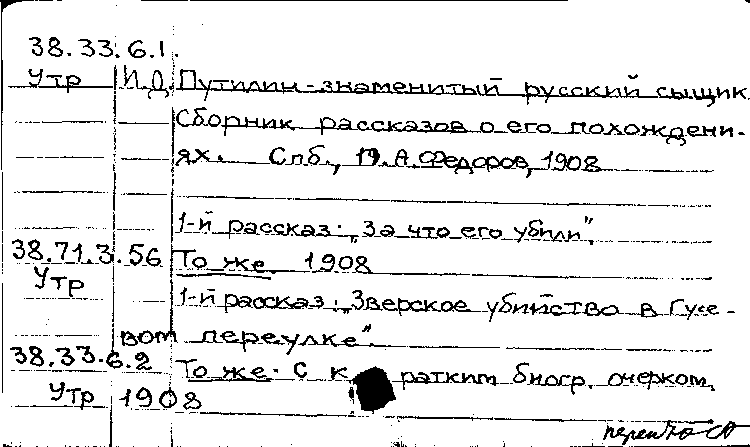 38.33.6.1.
Утр И.Д. Путилин - знаменитый русский сыщик.
Сборник рассказов о его похождени-
ях. Спб., А. Федоров, 1908
1-й рассказ: „За что его убили".
38.71.3.56 То же. 1908
Утр
1-й рассказ: „Зверское убийство в Гусе-
вом переулке".
38.33.6.2 То же. С кратким биогр. очерком.
Утр 1908